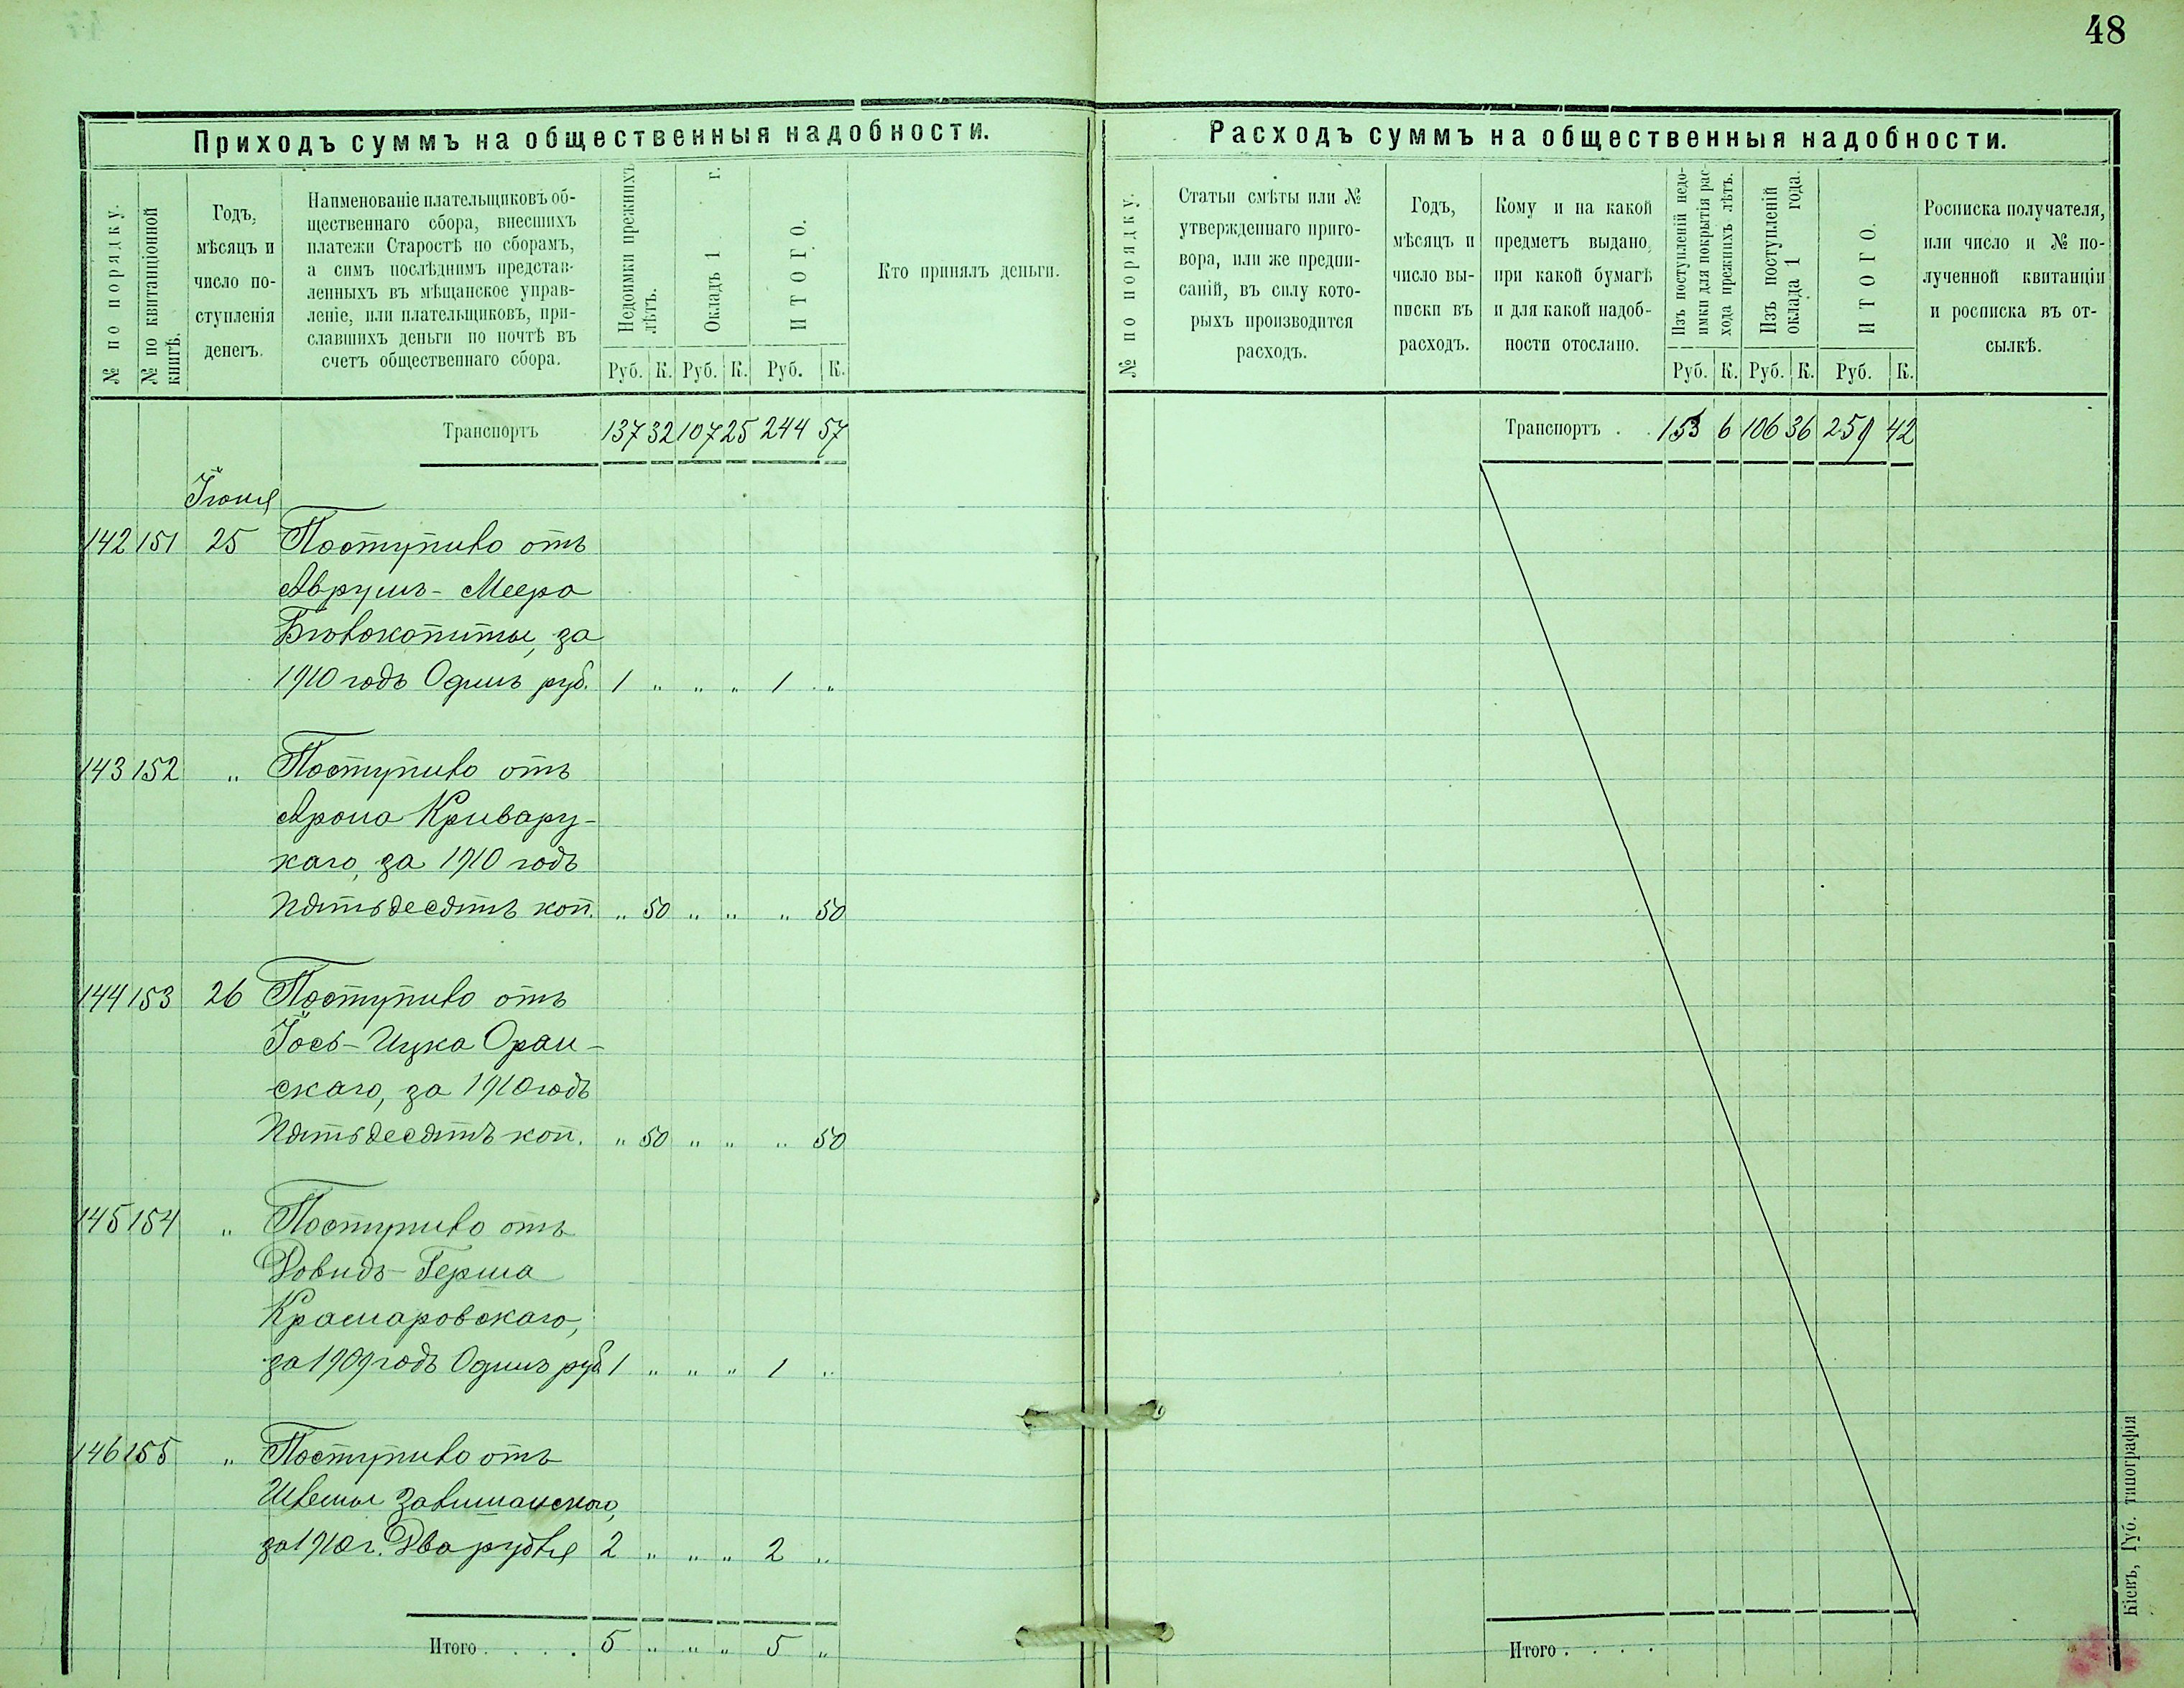 48
Приходъ суммъ на общественныя надобности.
№ по порядку.
№ по квитанціонной
книгѣ.
Годъ,
мѣсяцъ и
число по-
ступленія
денегъ.
Наименованіе плательщиковъ об-
щественнаго сбора, внесшихъ
платежи Старостѣ по сборамъ,
а симъ послѣднимъ представ-
ленныхъ въ мѣщанское управ-
леніе, или плательщиковъ, при-
славшихъ деньги по почтѣ въ
счетъ общественнаго сбора.
Недоимки прежнихъ
лѣтъ.
Окладъ 1 г.
ИТОГО.
Руб. К. Руб. К. Руб. К.
Кто принялъ деньги.
Транспортъ 137 32 107 25 244 57
Іюня
142 151 25 Поступило отъ
Аврумъ-Меера
Бѣлокопиты, за
1910 годъ Одинъ руб. 1 " " " 1 "
143 152 " Поступило отъ
Арона Кривару-
каго, за 1910 годъ
Пятьдесятъ коп. " 50 " " " 50
144 153 26 Поступило отъ
Іось-Ицка Оран-
скаго, за 1910 годъ
Пятьдесятъ коп. " 50 " " " 50
145 154 " Поступило отъ
Довидъ-Герша
Крамаровскаго,
за 1909 годъ Одинъ руб 1 " " " 1 "
146 155 " Поступило отъ
Шлемы Завишанского,
за 1910 г. Два рубля 2 " " " 2 "
Итого . . . . 5 " " " 5 "
Расходъ суммъ на общественныя надобности.
№ по порядку.
Статьи смѣты или №
утвержденнаго приго-
вора, или же предпи-
саній, въ силу кото-
рыхъ производится
расходъ.
Годъ,
мѣсяцъ и
число вы-
писки въ
расходъ.
Кому и на какой
предметъ выдано,
при какой бумагѣ
и для какой надоб-
ности отослано.
Изъ поступленій недо-
имки для покрытія рас-
хода прежнихъ лѣтъ.
Изъ поступленій
оклада 1 года.
ИТОГО.
Руб. К. Руб. К. Руб. К.
Росписка получателя,
или число и № по-
лученной квитанціи
и росписка въ от-
сылкѣ.
Транспортъ . . 153 6 106 36 259 42
Итого . . . .
Кіевъ, Губ. типографія